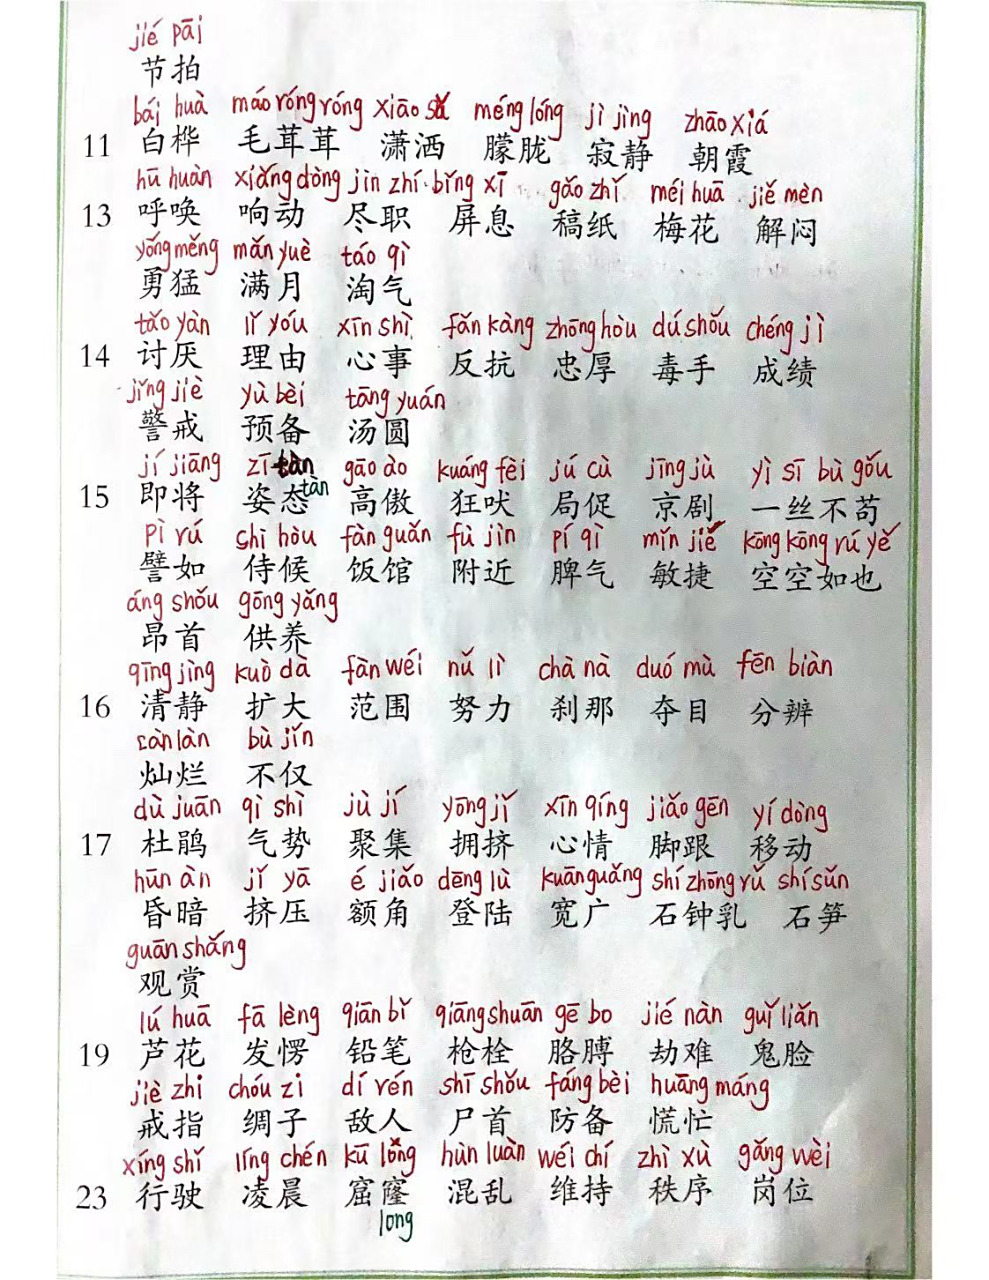 jié pāi
节拍
bái huà máo róng róng xiāo sǎ méng lóng jì jìng zhāo xiá
11 白桦 毛茸茸 潇洒 朦胧 寂静 朝霞
hū huàn xiǎng dòng jìn zhí bǐng xī gǎo zhǐ méi huā jiě mèn
13 呼唤 响动 尽职 屏息 稿纸 梅花 解闷
yǒng měng mǎn yuè táo qì
勇猛 满月 淘气
tǎo yàn lǐ yóu xīn shì fǎn kàng zhōng hòu dú shǒu chéng jì
14 讨厌 理由 心事 反抗 忠厚 毒手 成绩
jǐng jiè yù bèi tāng yuán
警戒 预备 汤圆
jí jiāng zī gāo ào kuáng fèi jú cù jīng jù yì sī bù gǒu
15 即将 姿态 tàn 高傲 狂吠 局促 京剧 一丝不苟
pì rú shì hòu fàn guǎn fù jìn pí qì mǐn jié kōng kōng rú yě
譬如 侍候 饭馆 附近 脾气 敏捷 空空如也
áng shǒu gōng yǎng
昂首 供养
qīng jìng kuò dà fàn wéi nǔ lì chà nà duó mù fēn biàn
16 清静 扩大 范围 努力 刹那 夺目 分辨
càn làn bù jǐn
灿烂 不仅
dù juān qì shì jù jí yōng jǐ xīn qíng jiǎo gēn yí dòng
17 杜鹃 气势 聚集 拥挤 心情 脚跟 移动
hūn àn jǐ yā é jiǎo dēng lù kuān guǎng shí zhōng rǔ shí sǔn
昏暗 挤压 额角 登陆 宽广 石钟乳 石笋
guān shǎng
观赏
lú huā fā lèng qiān bǐ qiāng shuān gē bo jié nàn guǐ liǎn
19 芦花 发愣 铅笔 枪栓 胳膊 劫难 鬼脸
jiè zhi chóu zi dí rén shī shǒu fáng bèi huāng máng
戒指 绸子 敌人 尸首 防备 慌忙
xíng shǐ líng chén kū lóng hùn luàn wéi chí zhì xù gǎng wèi
23 行驶 凌晨 窟窿 混乱 维持 秩序 岗位
long